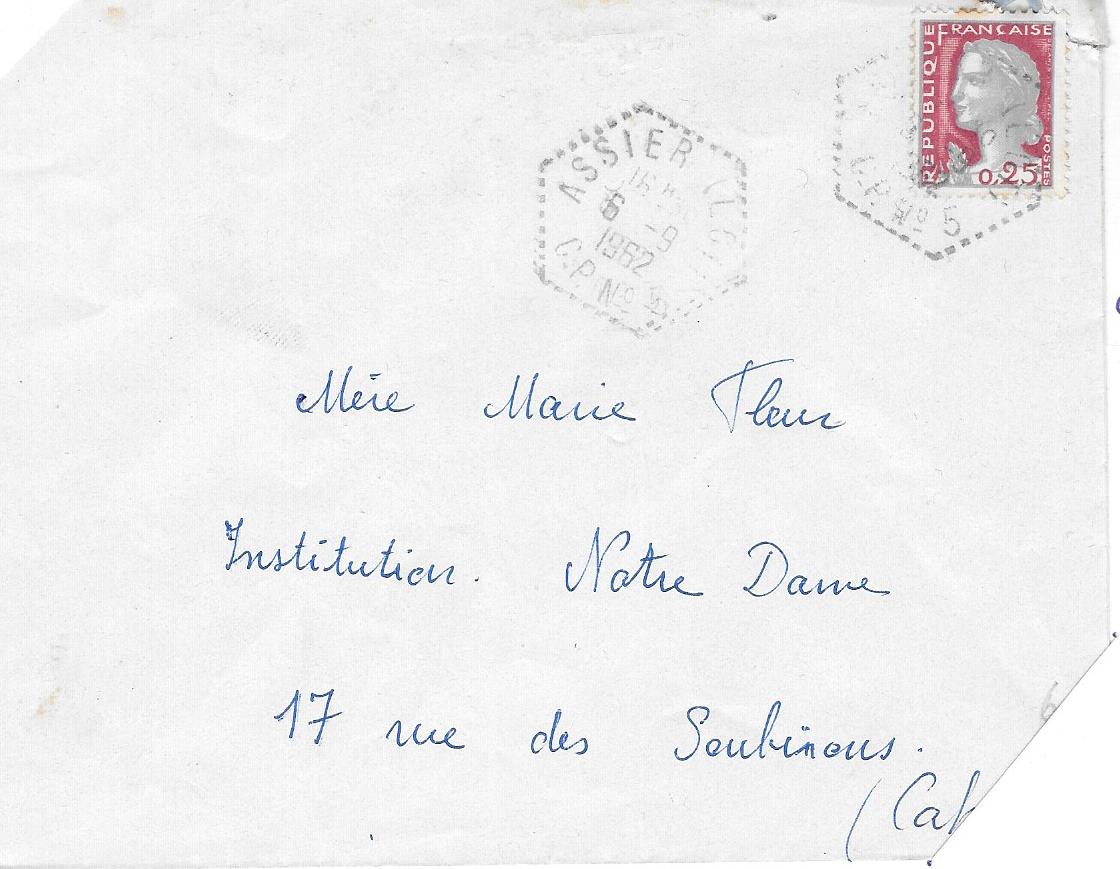 RÉPUBLIQUE FRANÇAISE
POSTES
0,25
ASSIER (LOT)
16 H
6 -9
1962
C.P. No 5
C.P. No 5
Mère Marie Fleur
Institution. Notre Dame
17 rue des Soubirous.
(Cah